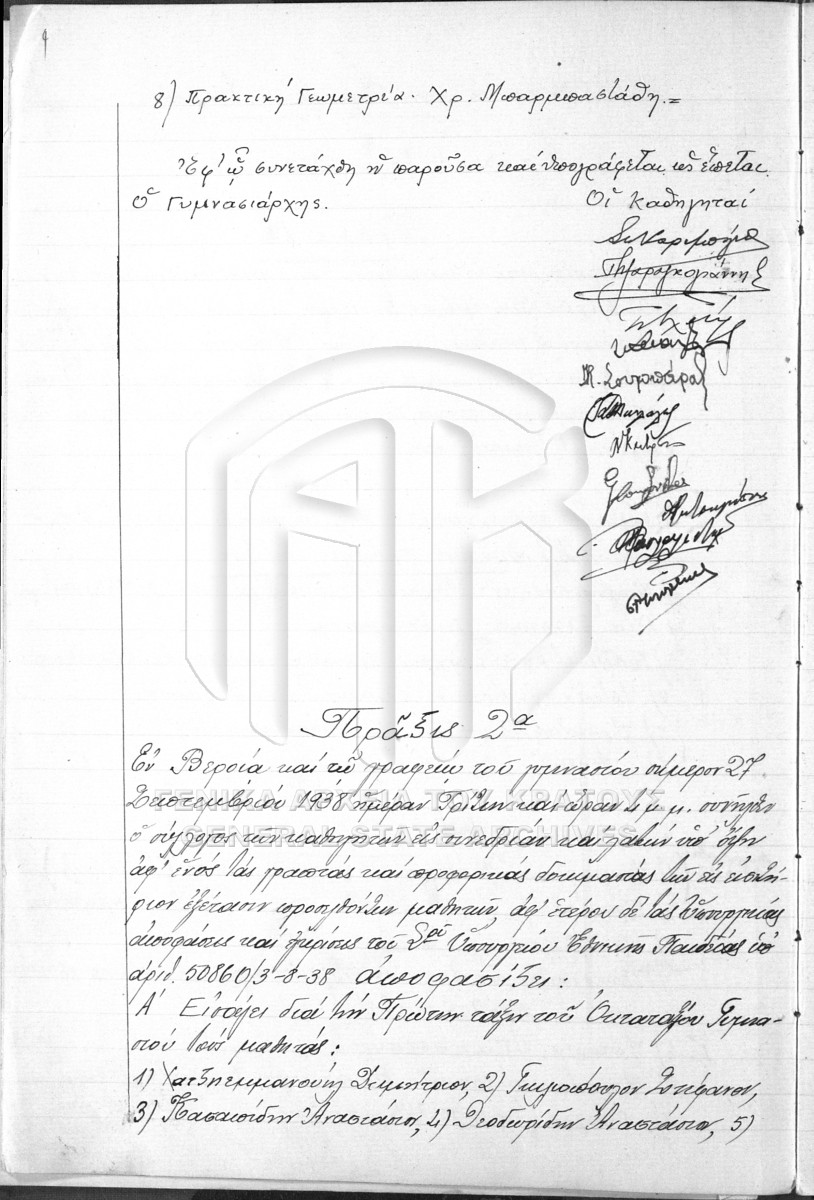 8) Πρακτική Γεωμετρία. Χρ. Μπαρμπαστάθη.=
Ἐφ' ᾧ συνετάχθη ἡ παροῦσα καί ὑπογράφεται ὡς ἕπεται.
Ὁ Γυμνασιάρχης. Οἱ καθηγηταί
Πρᾶξις 2α
Ἐν Βεροίᾳ καί τῷ γραφείῳ τοῦ γυμνασίου σήμερον 27
Σεπτεμβρίου 1938 ἡμέραν Τρίτην καί ὥραν 4 μ.μ. συνῆλθεν
ΓΕΝΙΚΑ ΑΡΧΕΙΑ ΤΟΥ ΚΡΑΤΟΥΣ
GENERAL STATE ARCHIVES
ὁ σύλλογος τῶν καθηγητῶν εἰς συνεδρίαν καί λαβών ὑπ' ὄψιν
ἀφ' ἑνός τάς γραπτάς καί προφορικάς δοκιμασίας τῶν εἰς εἰσιτή-
ριον ἐξέτασιν προσελθόντων μαθητῶν, ἀφ' ἑτέρου δέ τάς ὑπουργικάς
ἀποφάσεις καί ἐγκρίσεις τοῦ Σοῦ Ὑπουργείου Ἐθνικῆς Παιδείας ὑπ'
ἀριθ. 50860/3-8-38 ἀποφασίζει:
Α' Εἰσάγει διά τήν Πρώτην τάξιν τοῦ Ὀκταταξίου Γυμνα-
σίου τούς μαθητάς:
1) Χατζηεμμανουήλ Δημήτριον, 2) Στέφανον,
3) Ἀναστάσιον, 4) Θεοδωρίδην Ἀναστάσιον, 5)